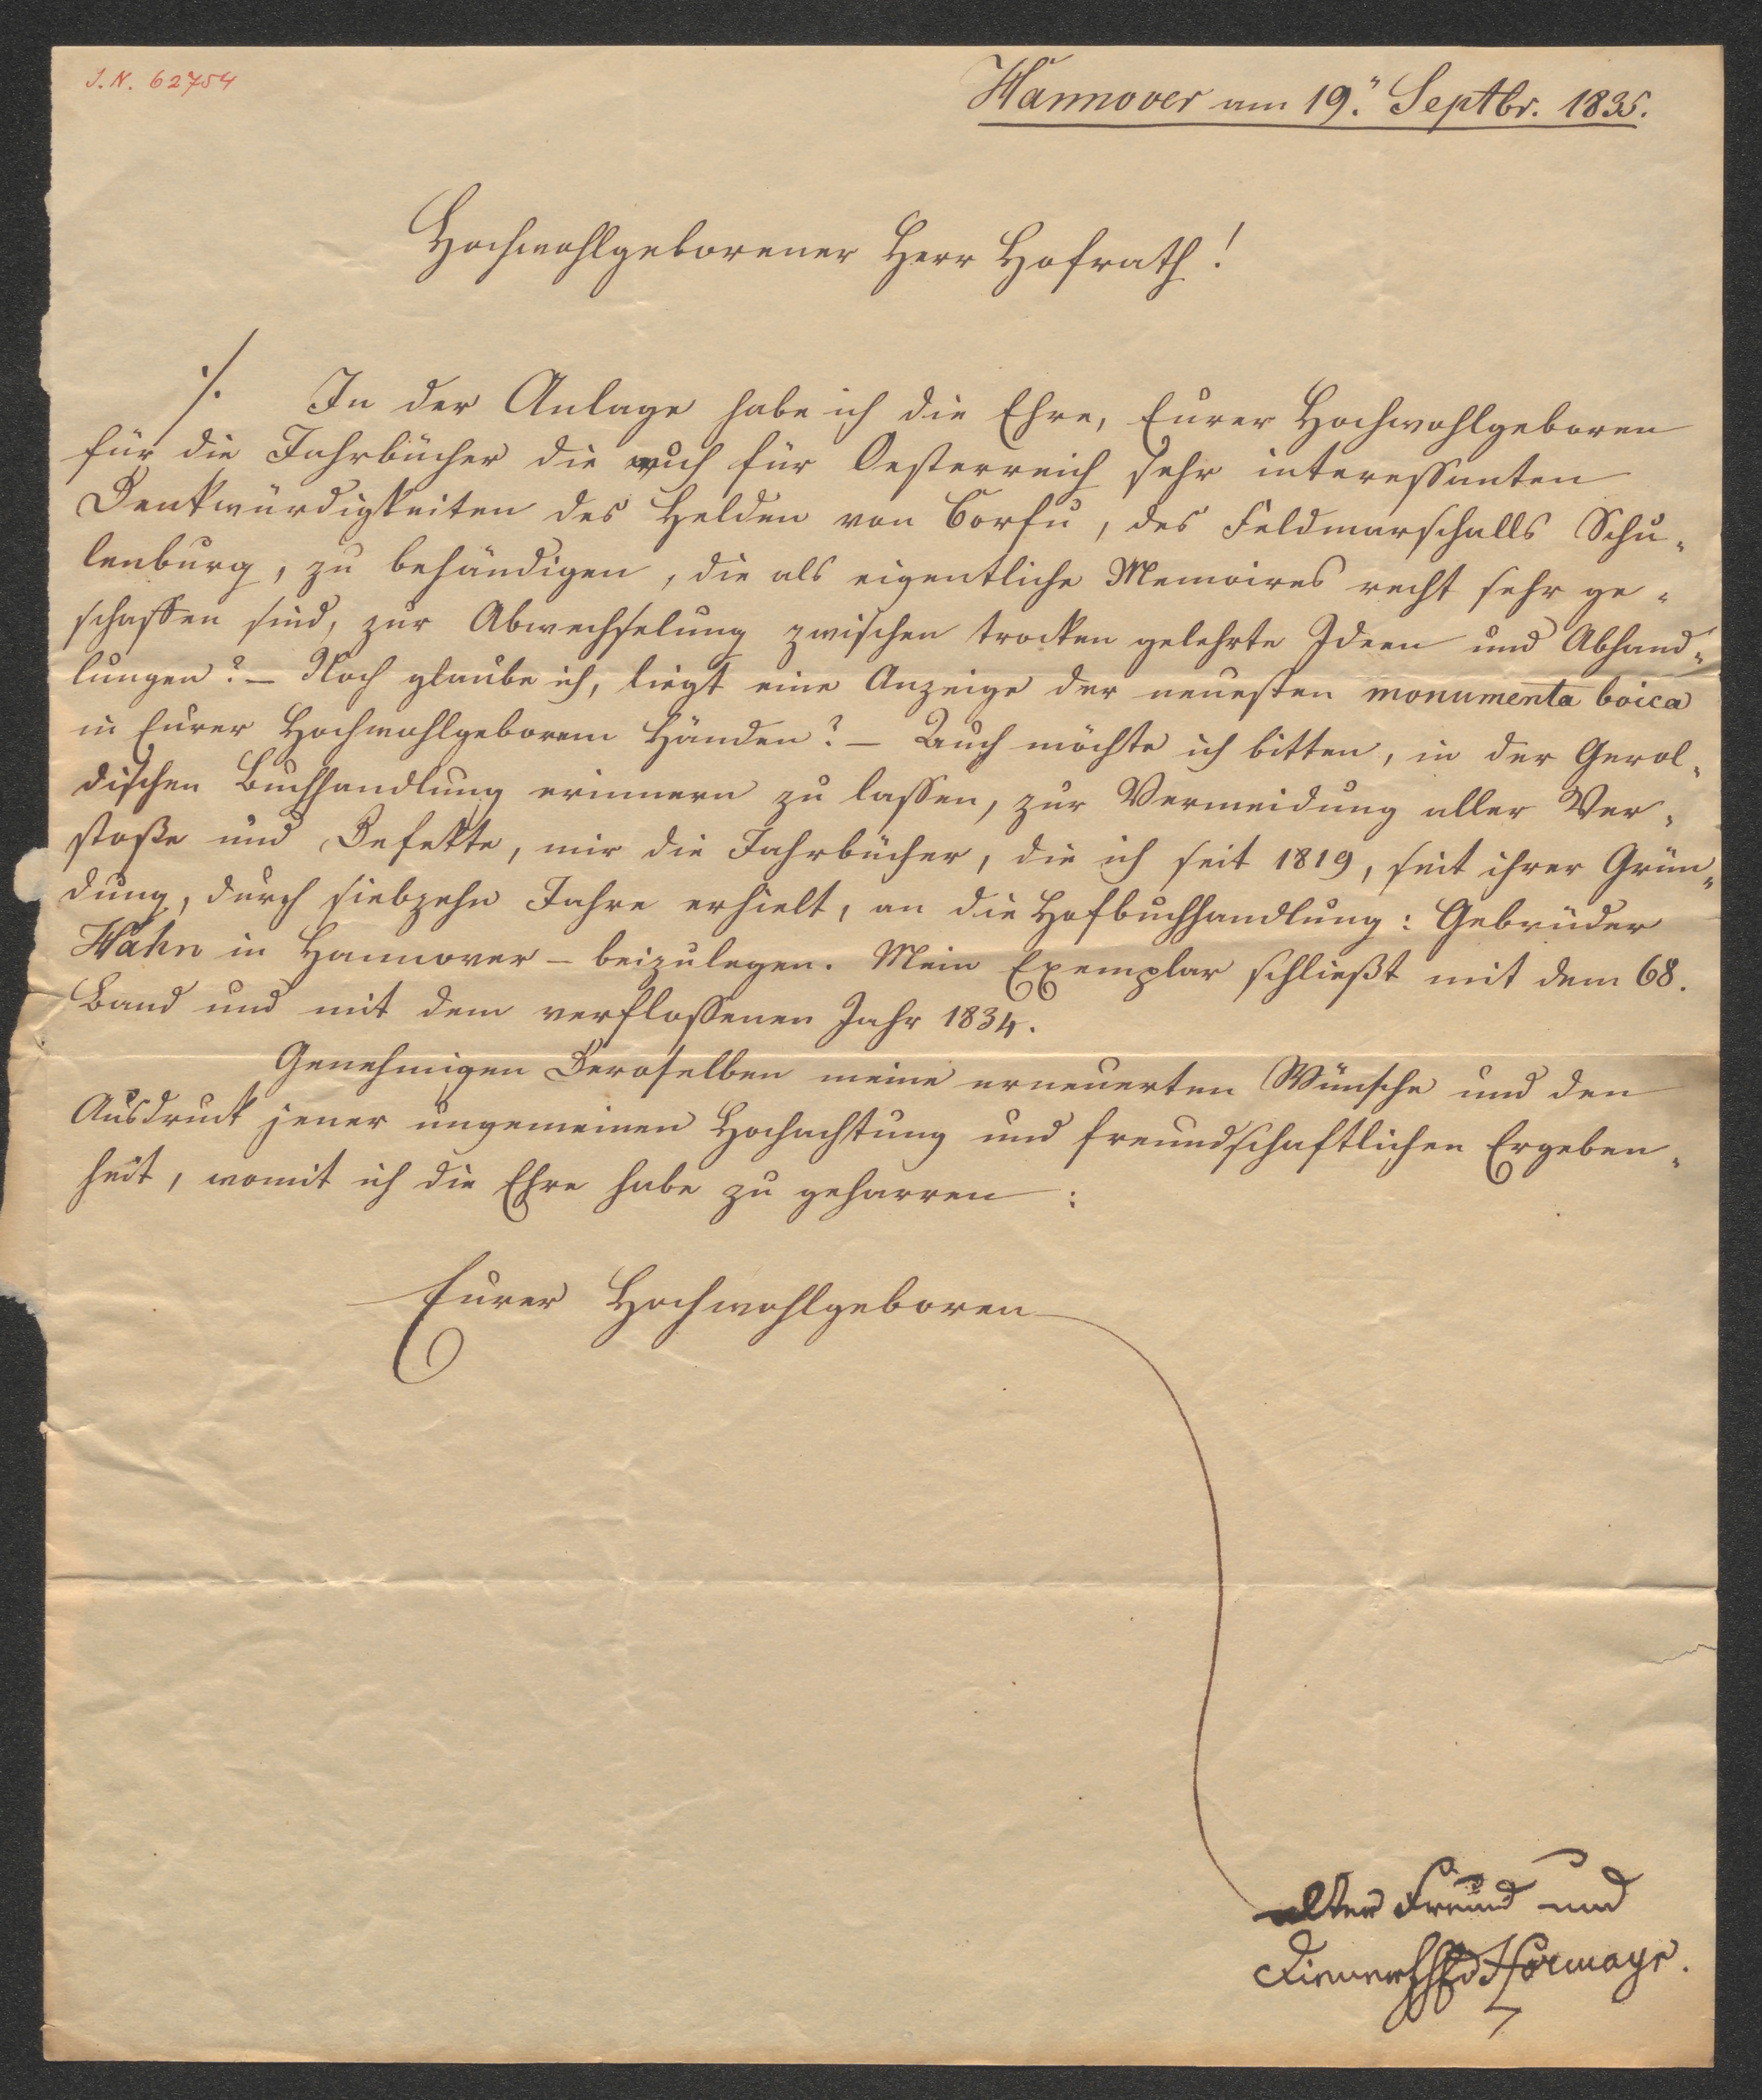 J. N. 62754
Hannover am 19. Septbr. 1835.
Hochwohlgeborener Herr Hofrath!
./. In der Anlage habe ich die Ehre, Eurer Hochwohlgeboren
für die Jahrbücher die auch für Oesterreich sehr interessanten
Denkwürdigkeiten des Helden von Corfu, des Feldmarschalls Schu-
lenburg, zu behändigen, die als eigentliche Memoires recht sehr ge-
schaffen sind, zur Abwechselung zwischen trocken gelehrte Ideen und Abhand-
lungen? – Noch glaube ich, liegt eine Anzeige der neuesten monumenta boica
in Eurer Hochwohlgeboren Händen? – Auch möchte ich bitten, in der Gerol-
dischen Buchhandlung erinnern zu lassen, zur Vermeidung aller Ver-
stoße und Defekte, mir die Jahrbücher, die ich seit 1819, seit ihrer Grün-
dung, durch siebzehn Jahre erhielt, an die Hofbuchhandlung: Gebrüder
Hahn in Hannover – beizulegen. Mein Exemplar schließt mit dem 68.
Band und mit dem verflossenen Jahr 1834.
Genehmigen Deroselben meine erneuerten Wünsche und den
Ausdruck jener ungemeinen Hochachtung und freundschaftlichen Ergeben-
heit, womit ich die Ehre habe zu geharren:
Eurer Hochwohlgeboren
alter Freund und
Diener Hormayr.